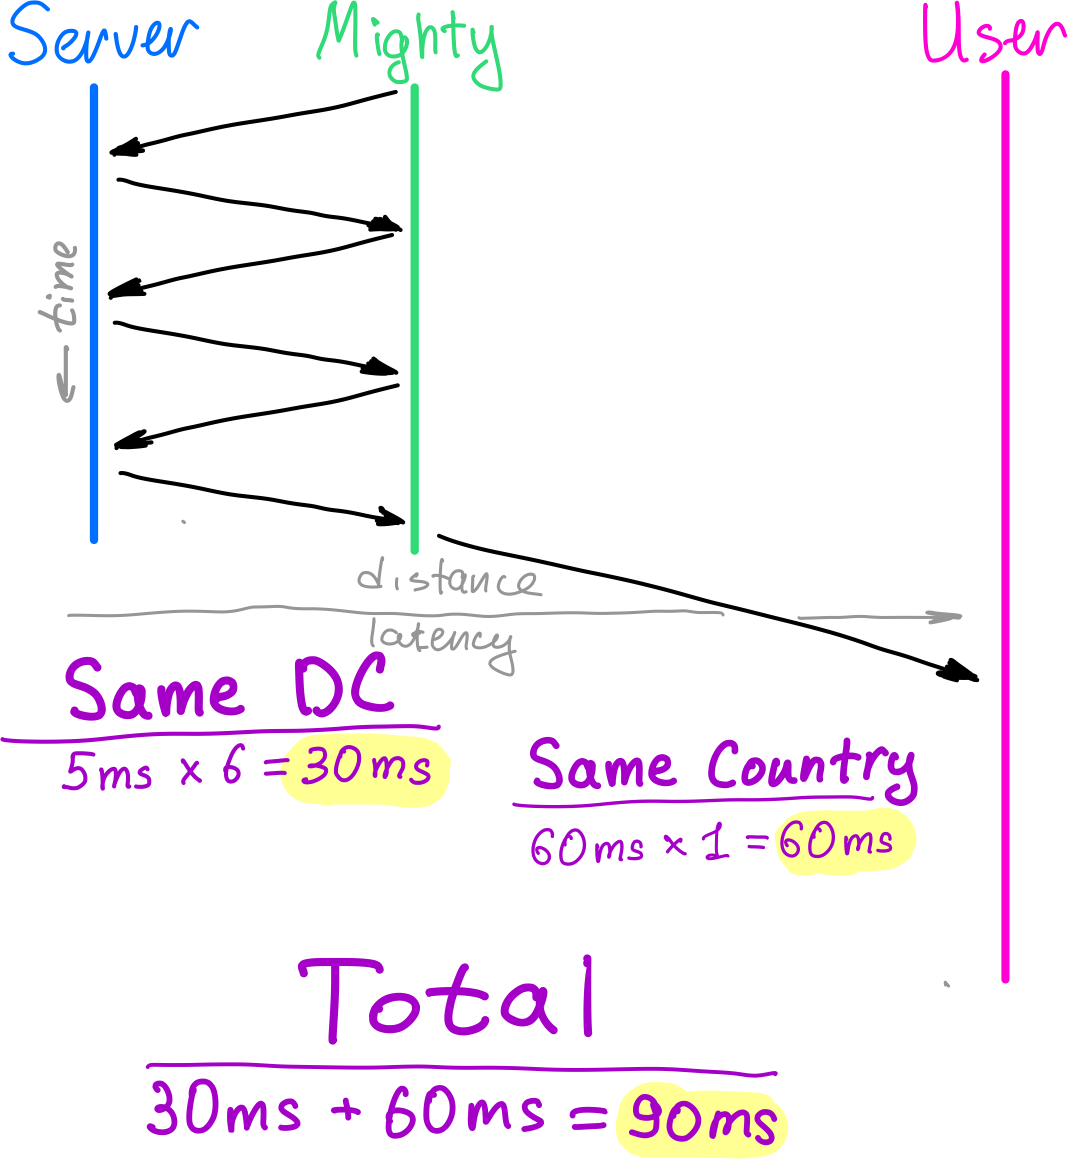 Server
Mighty
User
← time
distance
latency
Same DC
5ms x 6 = 30ms
Same Country
60ms x 1 = 60ms
Total
30ms + 60ms = 90ms